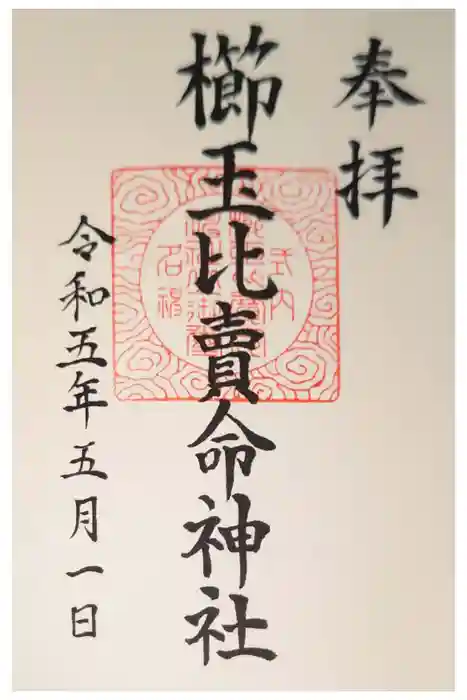 奉拝
櫛玉比賣命神社
式内
令和五年五月一日